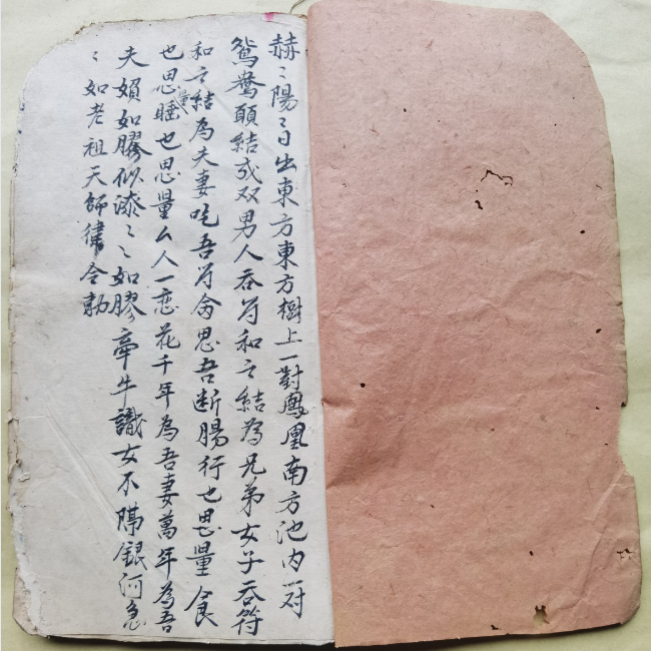 赫〻陽〻日出東方東方樹上一對鳳凰南方池內一对
鴛鴦願結成双男人吞符和之結為兄弟女子吞符
和之結為夫妻吃吾符令思吾断腸行也思量食
也思量睡也思量么人一恋花千年為吾妻萬年為吾
夫如膠似漆〻〻如膠牽牛識女不隔銀河急
〻如老祖天師律令勅